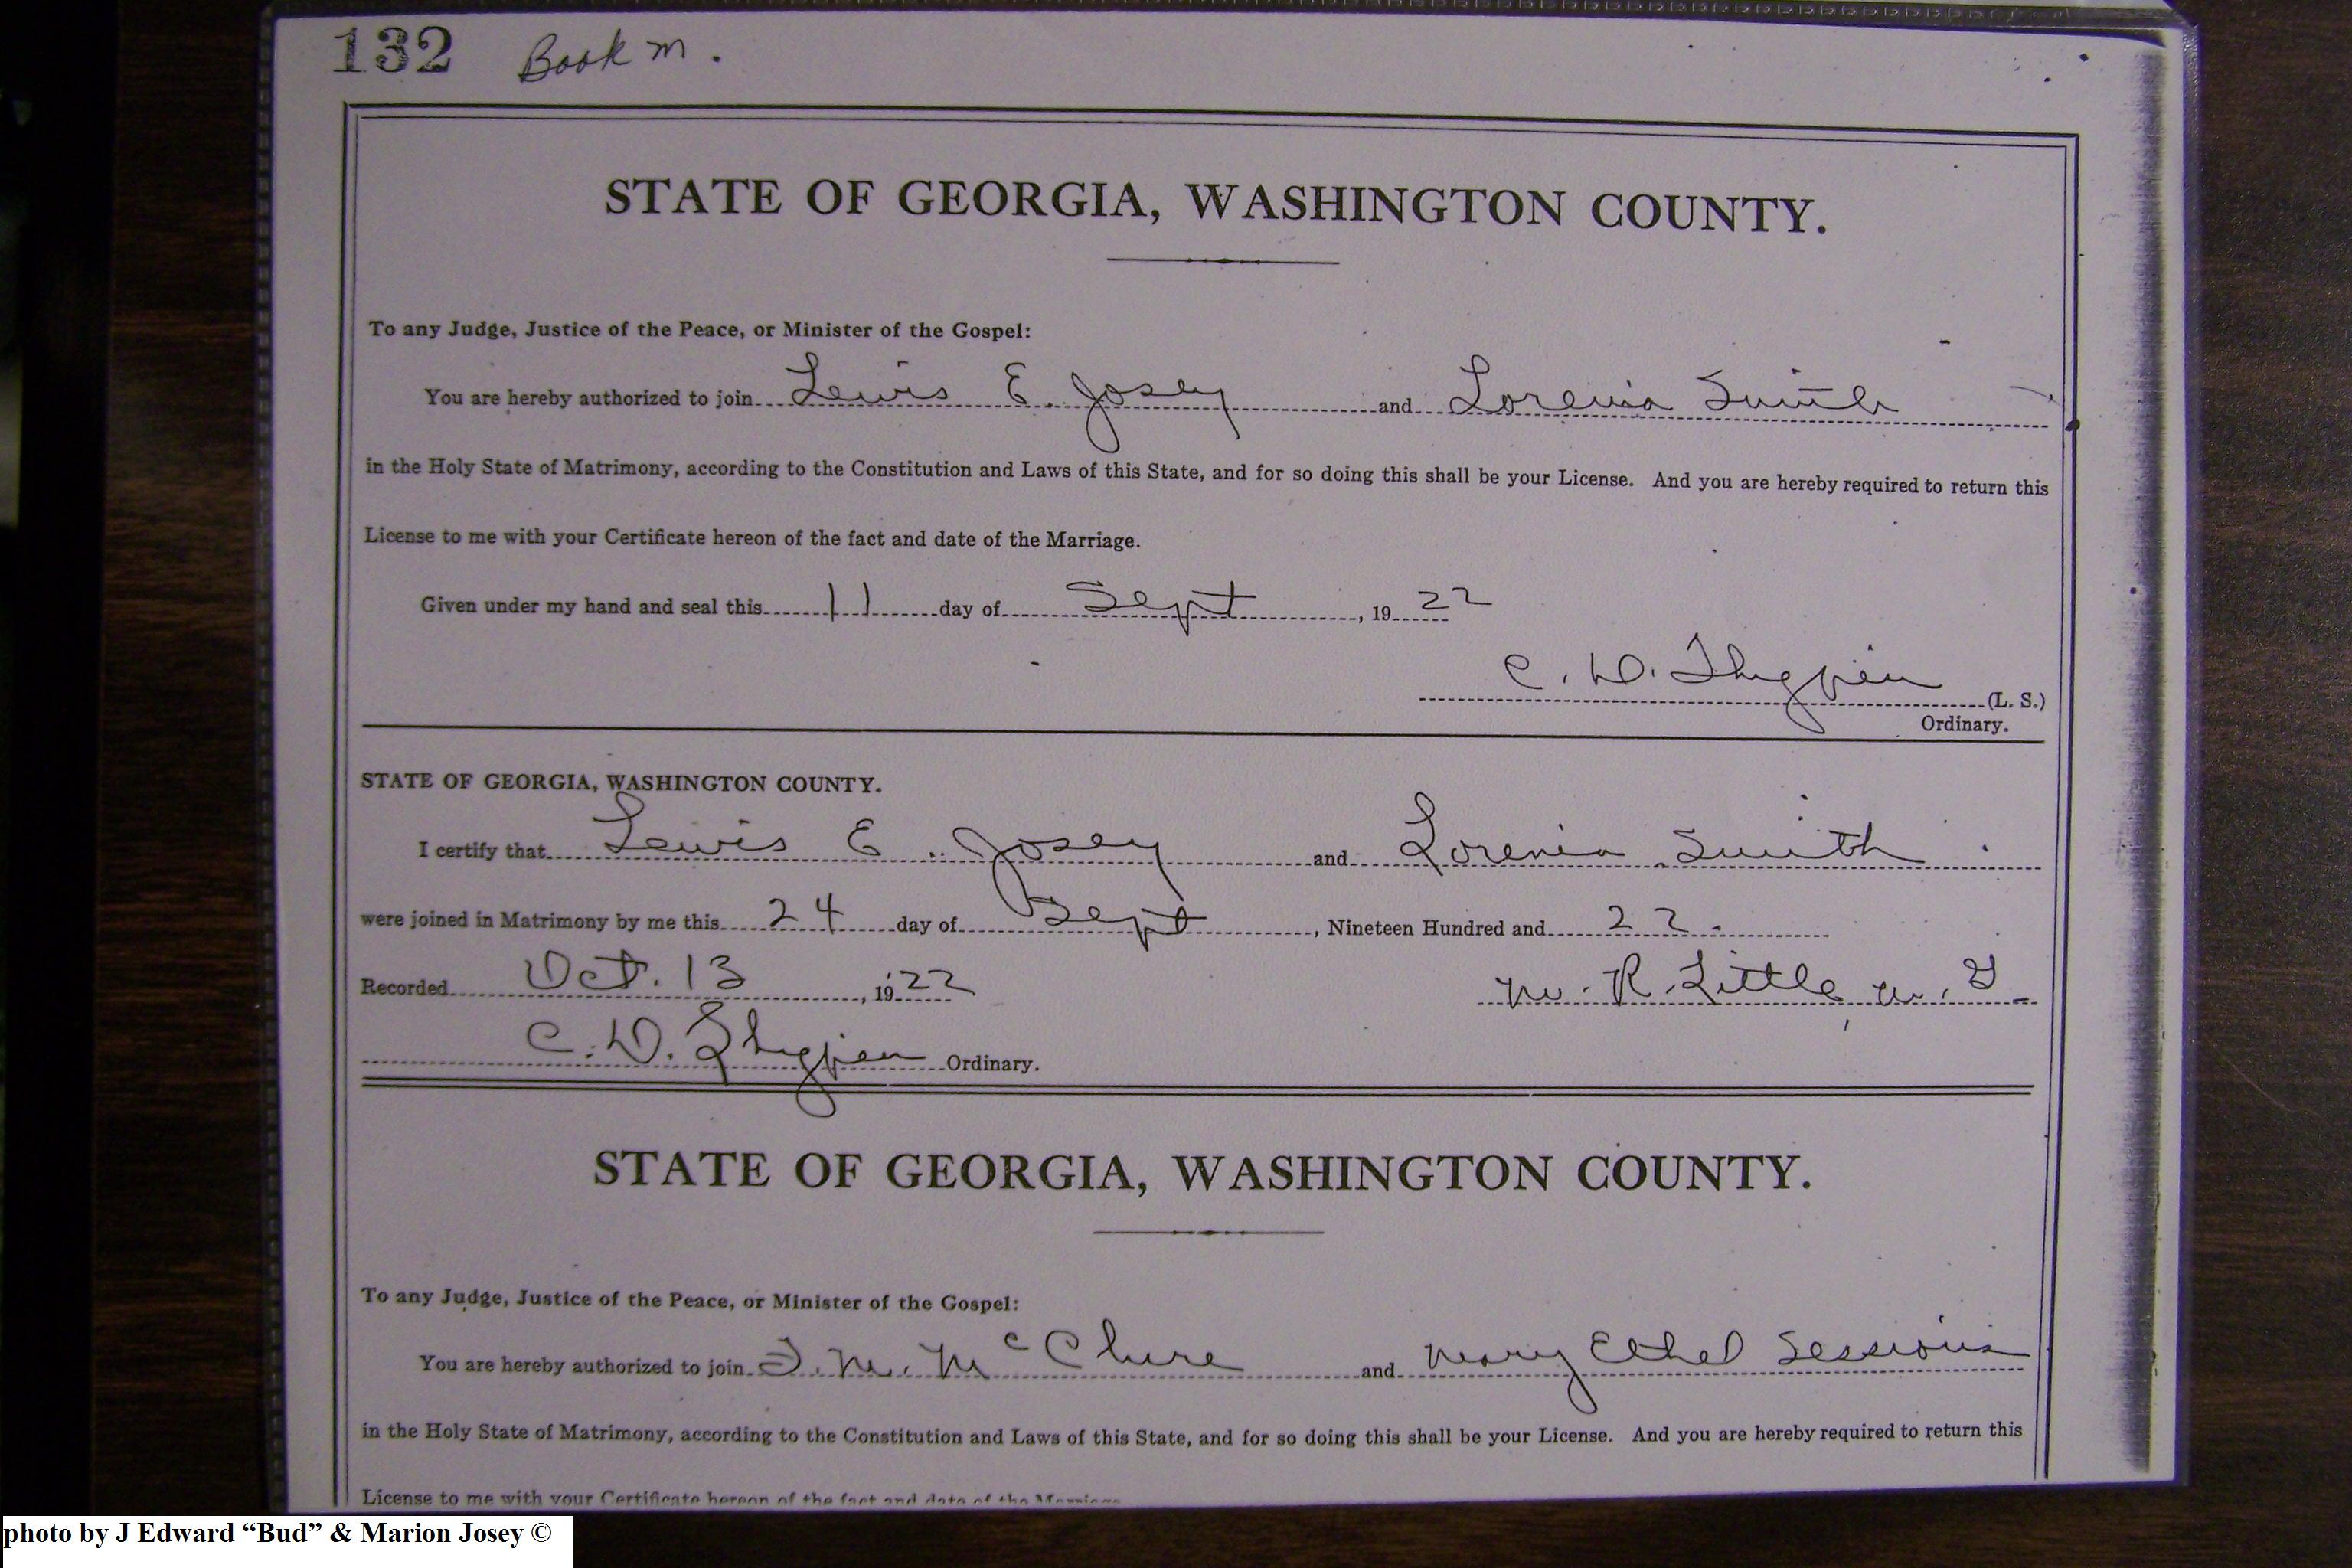 132 Book M.
STATE OF GEORGIA, WASHINGTON COUNTY.
To any Judge, Justice of the Peace, or Minister of the Gospel:
You are hereby authorized to join Lewis E. Josey and Lorenia Smith
in the Holy State of Matrimony, according to the Constitution and Laws of this State, and for so doing this shall be your License. And you are hereby required to return this
License to me with your Certificate hereon of the fact and date of the Marriage.
Given under my hand and seal this 11 day of Sept, 1922
C. D. Thigpen (L. S.)
Ordinary.
STATE OF GEORGIA, WASHINGTON COUNTY.
I certify that Lewis E. Josey and Lorenia Smith
were joined in Matrimony by me this 24 day of Sept, Nineteen Hundred and 22.
Recorded Oct. 13, 1922 W. R. Little, M. G.
C. D. Thigpen Ordinary.
STATE OF GEORGIA, WASHINGTON COUNTY.
To any Judge, Justice of the Peace, or Minister of the Gospel:
You are hereby authorized to join J. M. McClure and Mary Ethel Sessions
in the Holy State of Matrimony, according to the Constitution and Laws of this State, and for so doing this shall be your License. And you are hereby required to return this
License to me with your Certificate hereon of the fact and date of the Marriage.
photo by J Edward “Bud” & Marion Josey ©